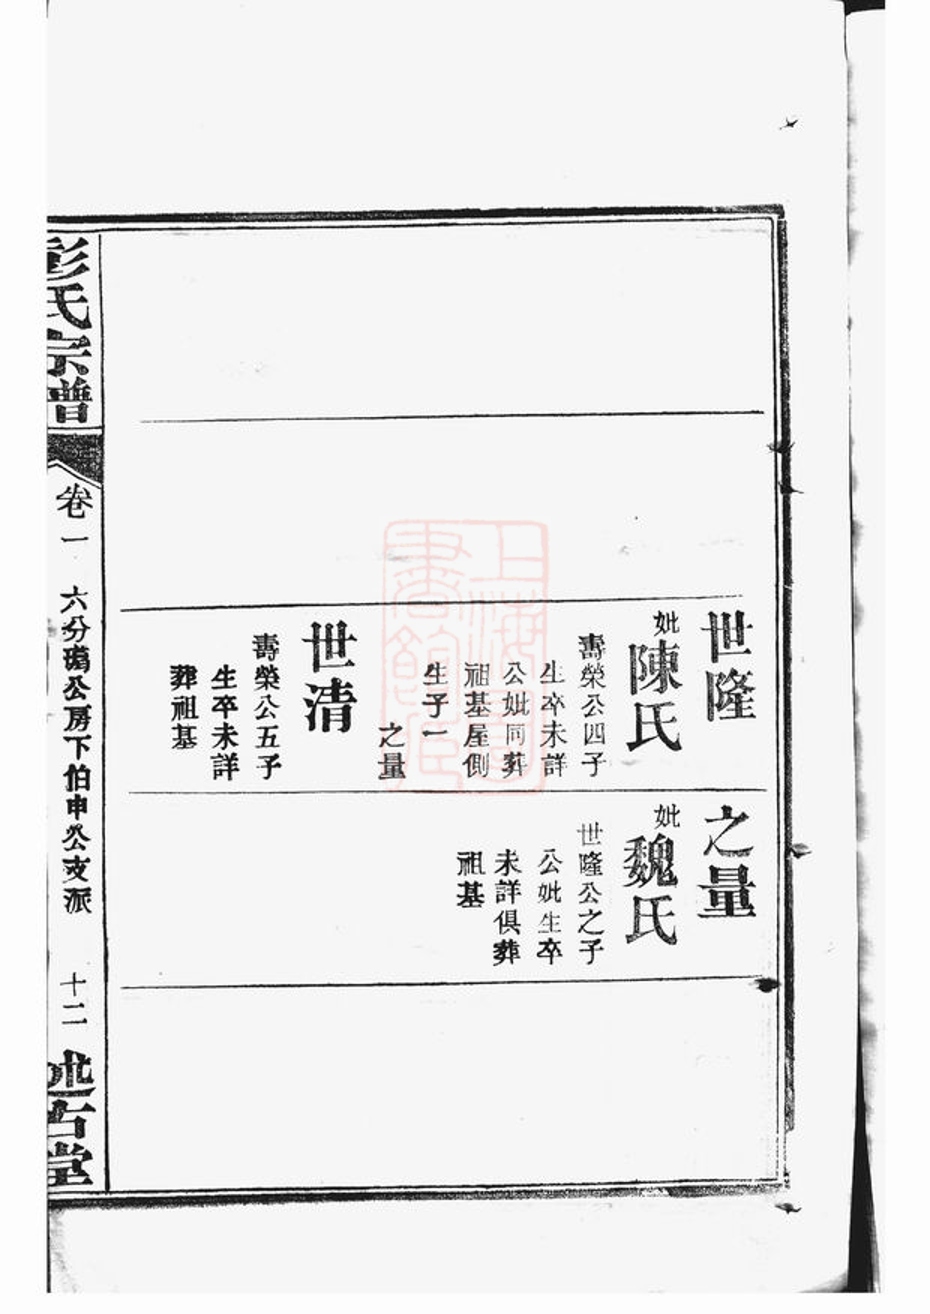 世隆
妣陳氏
壽榮公四子
生卒未詳
公妣同葬
祖基屋側
生子一
之量
世清
壽榮公五子
生卒未詳
葬祖基
之量
妣魏氏
世隆公之子
公妣生卒
未詳俱葬
祖基
彭氏宗譜
卷一
六分瑪公房下伯申公支派
十二
述古堂
上海圖書館藏